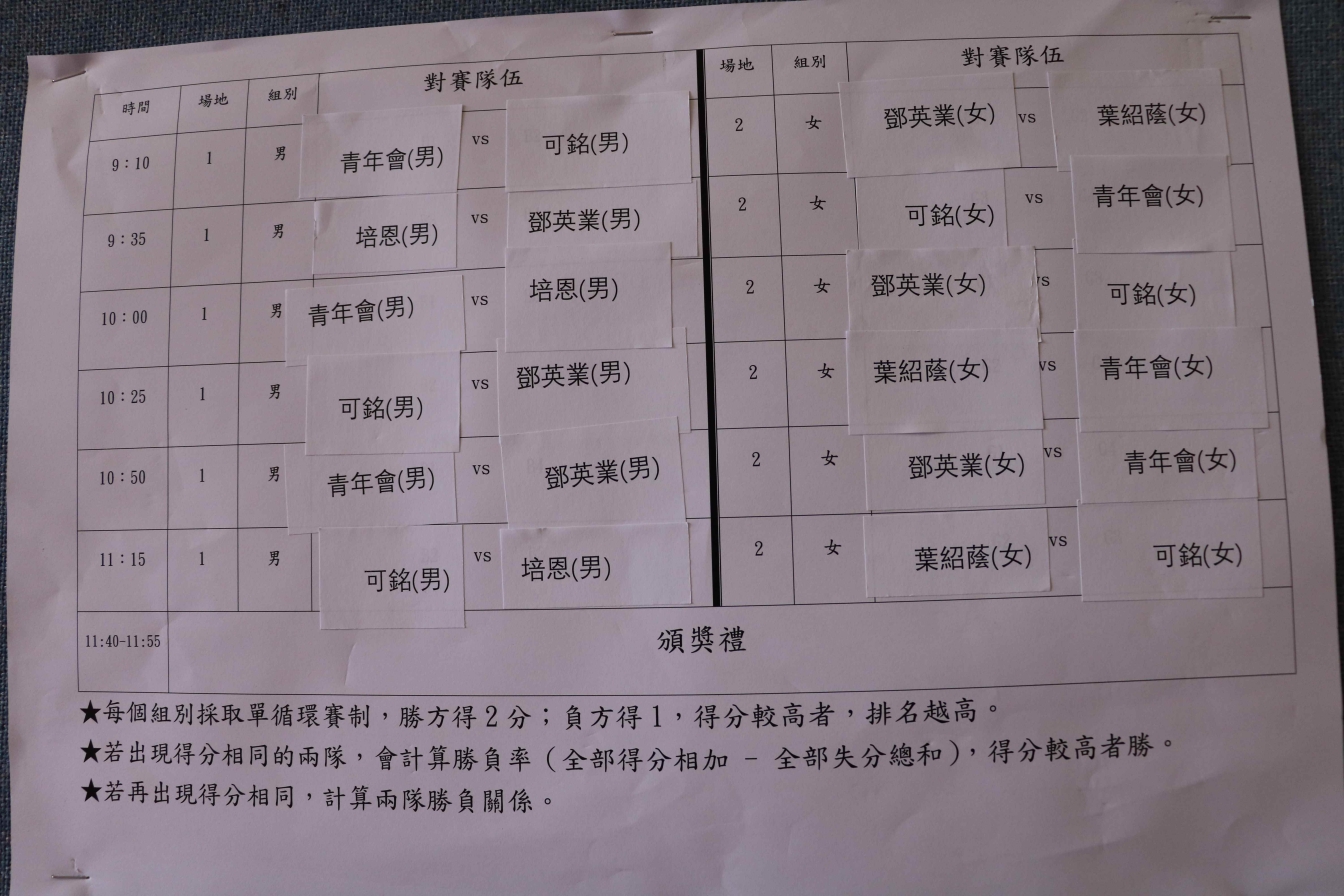 時間 場地 組別 對賽隊伍 場地 組別 對賽隊伍
9：10 1 男 青年會(男) vs 可銘(男) 2 女 鄧英業(女) vs 葉紹蔭(女)
9：35 1 男 培恩(男) vs 鄧英業(男) 2 女 可銘(女) vs 青年會(女)
10：00 1 男 青年會(男) vs 培恩(男) 2 女 鄧英業(女) vs 可銘(女)
10：25 1 男 可銘(男) vs 鄧英業(男) 2 女 葉紹蔭(女) vs 青年會(女)
10：50 1 男 青年會(男) vs 鄧英業(男) 2 女 鄧英業(女) vs 青年會(女)
11：15 1 男 可銘(男) vs 培恩(男) 2 女 葉紹蔭(女) vs 可銘(女)
11:40-11:55 頒獎禮
★每個組別採取單循環賽制，勝方得2分；負方得1，得分較高者，排名越高。
★若出現得分相同的兩隊，會計算勝負率（全部得分相加 － 全部失分總和），得分較高者勝。
★若再出現得分相同，計算兩隊勝負關係。